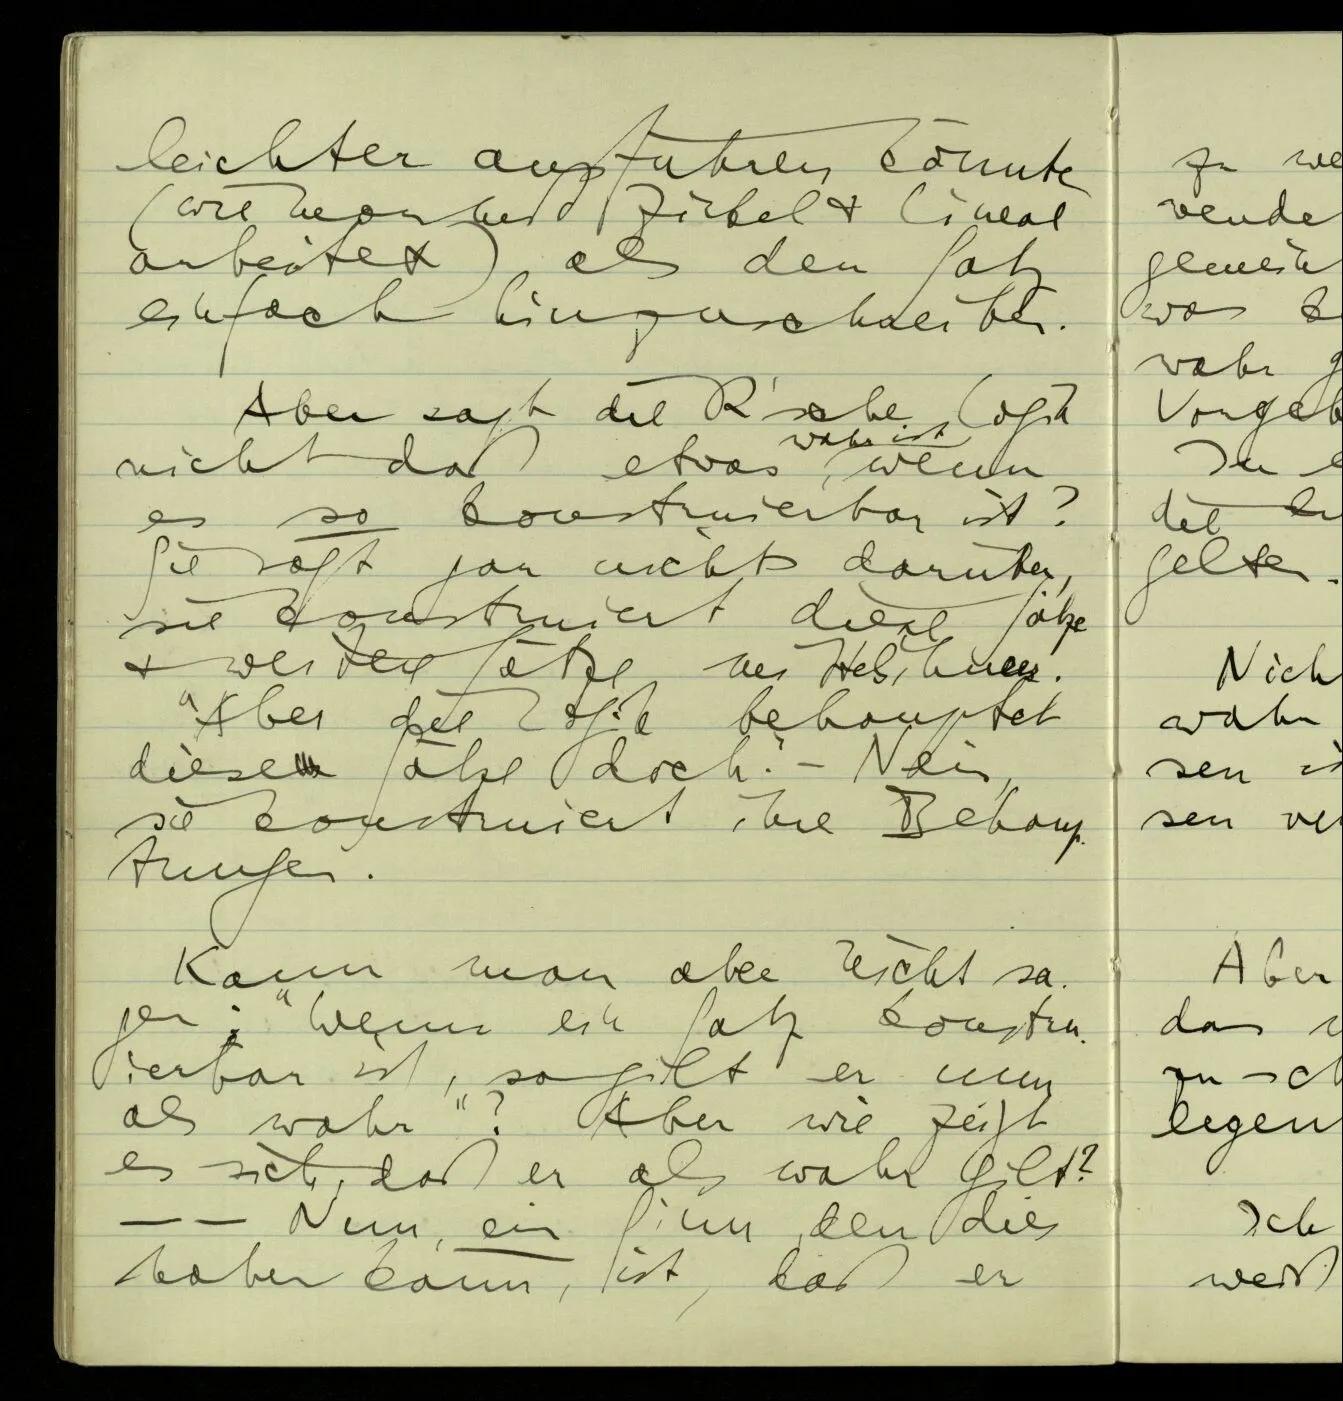 leichter ausführen könnte
(wie man mit Zirkel & Lineal
arbeitet) als den Satz
einfach hinzuschreiben.
Aber sagt die R'sche Logik
nicht daß etwas wahr ist, wenn
es so konstruierbar ist?
Sie sagt gar nichts darüber,
sie konstruiert diese Sätze
& werden Sätze
"Aber die Logik behauptet
diese Sätze doch." – Nein,
sie konstruiert ihre Behaup-
tungen.
Kann man aber nicht sa-
gen: "Wenn ein Satz konstru-
ierbar ist, so gilt er nun
als wahr"? Aber wie zeigt
es sich, daß er als wahr gilt?
— — Nun, ein Sinn, den dies
haben kann, ist, daß er
zu we
wende
gemein
was
wahr g
Vorgeb
In e
die
gelten.
Nich
wahr
sen is
sen ver
Aber
das
zu sch
legen
Ich
weiß